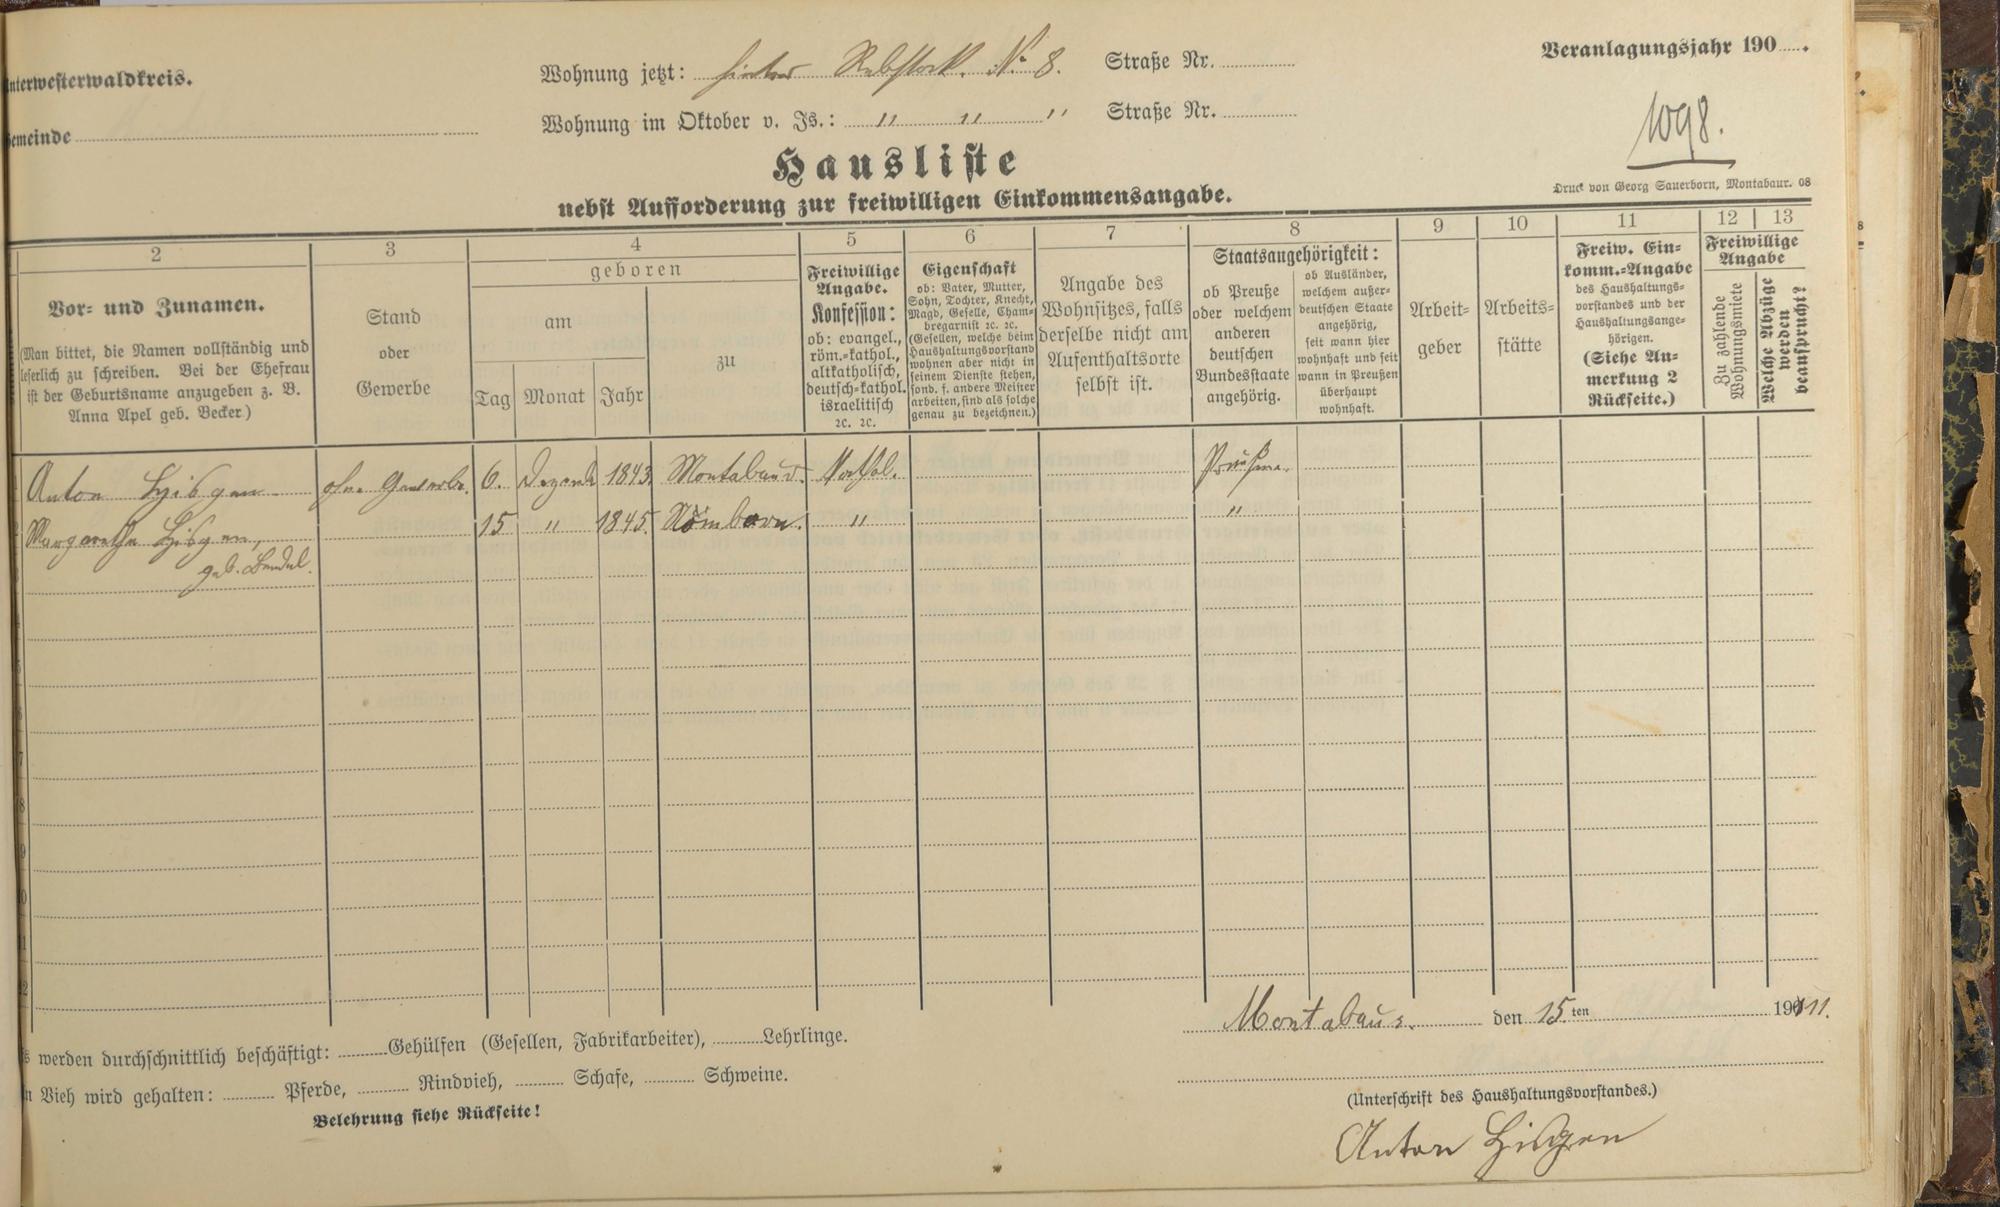 nterwesterwaldkreis.
emeinde
Wohnung jetzt: hinter Rebstock. No 8. Straße Nr.
Wohnung im Oktober v. Js.: " " " Straße Nr.
Veranlagungsjahr 190 .
1098.
Hausliste
nebst Aufforderung zur freiwilligen Einkommensangabe.
Druck von Georg Sauerborn, Montabaur. 08
2 3 4 5 6 7 8 9 10 11 12 13
Vor- und Zunamen.
(Man bittet, die Namen vollständig und
leserlich zu schreiben. Bei der Ehefrau
ist der Geburtsname anzugeben z. B.
Anna Apel geb. Becker.)
Stand
oder
Gewerbe
geboren
am
Tag Monat Jahr
zu
Freiwillige
Angabe.
Konfession:
ob: evangel.,
röm.-kathol.,
altkatholisch,
deutsch-kathol.
israelitisch
2c. 2c.
Eigenschaft
ob: Vater, Mutter,
Sohn, Tochter, Knecht,
Magd, Geselle, Cham-
bregarnist 2c. 2c.
(Gesellen, welche beim
Haushaltungsvorstand
wohnen aber nicht in
seinem Dienste stehen,
sond. f. andere Meister
arbeiten, sind als solche
genau zu bezeichnen.)
Angabe des
Wohnsitzes, falls
derselbe nicht am
Aufenthaltsorte
selbst ist.
Staatsangehörigkeit:
ob Preuße
oder welchem
anderen
deutschen
Bundesstaate
angehörig.
ob Ausländer,
welchem außer-
deutschen Staate
angehörig,
seit wann hier
wohnhaft und seit
wann in Preußen
überhaupt
wohnhaft.
Arbeit-
geber
Arbeits-
stätte
Freiw. Ein-
komm.-Angabe
des Haushaltungs-
vorstandes und der
Haushaltungsange-
hörigen.
(Siehe An-
merkung 2
Rückseite.)
Freiwillige
Angabe
Zu zahlende
Wohnungsmiete
Welche Abzüge
werden
beansprucht?
Anton Hisgen ohne Gewerbe. 6. Dezemb 1843. Montabaur. Kathol. Preuße.
Margaretha Hisgen, 15 " 1845. Nömborn. " "
geb. Bendel.
3
4
5
6
7
8
9
10
11
12
Montabaur. den 15.ten 1911.
s werden durchschnittlich beschäftigt: Gehülfen (Gesellen, Fabrikarbeiter), Lehrlinge.
n Vieh wird gehalten: Pferde, Rindvieh, Schafe, Schweine.
Belehrung siehe Rückseite!
(Unterschrift des Haushaltungsvorstandes.)
Anton Hisgen